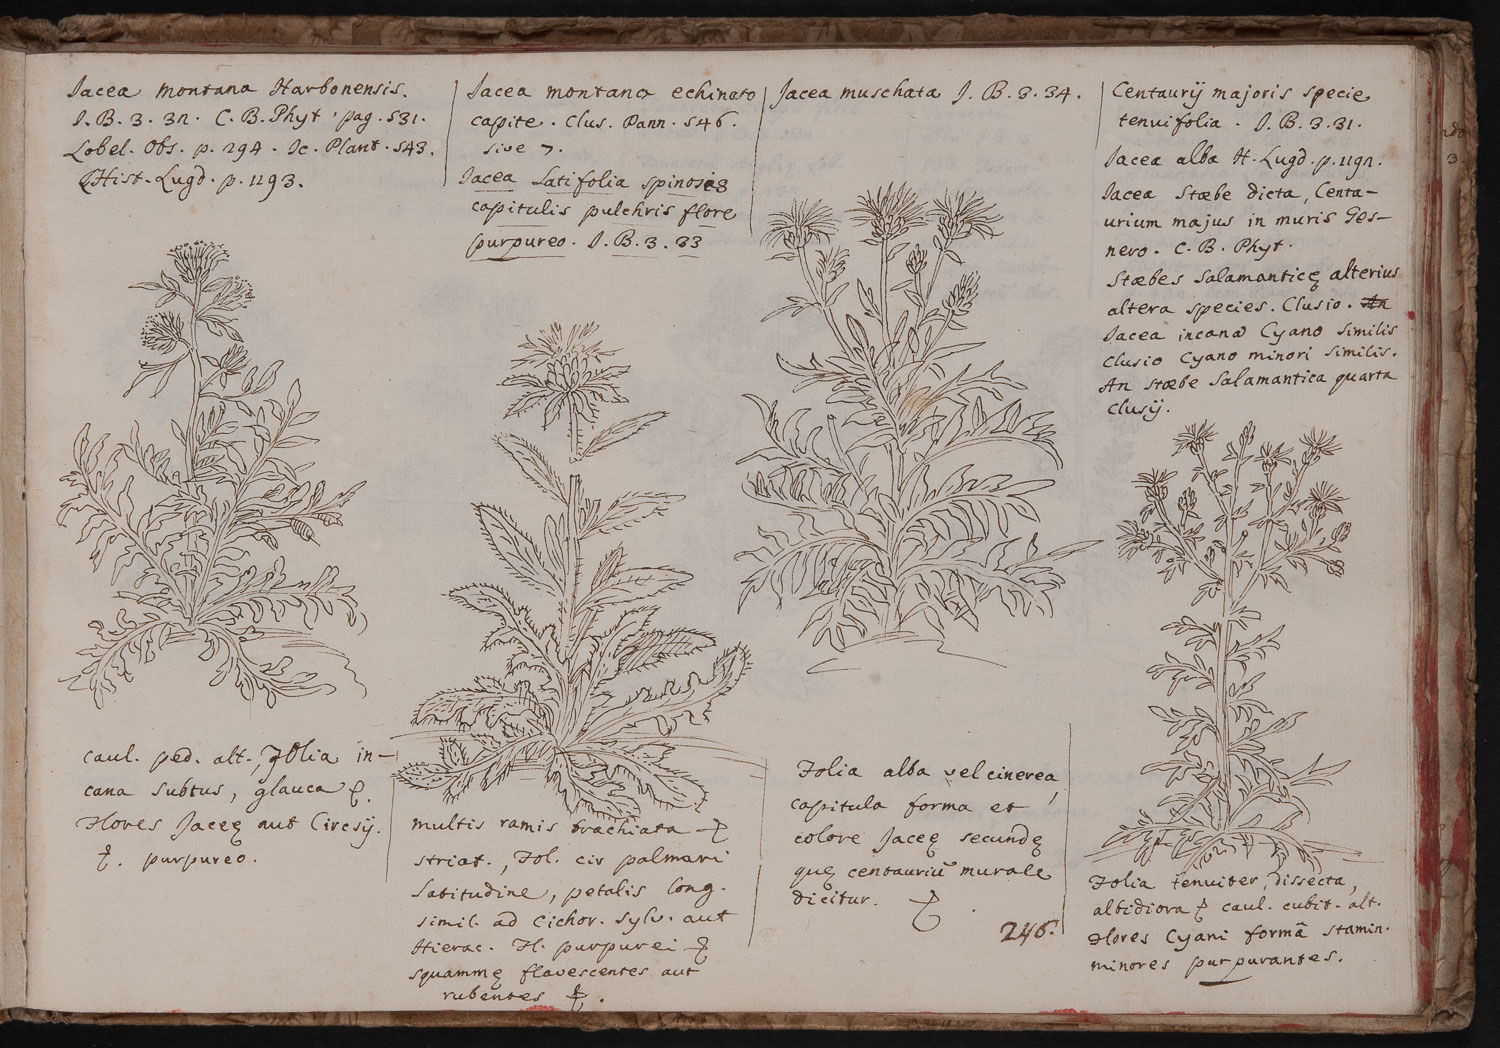 Jacea montana Narbonensis.
I. B. 3. 32. C. B. Phyt. pag. 531.
Lobel. Obs. p. 294. Ic. Plant. 543.
Hist. Lugd. p. 1193.
caul. ped. alt., folia in-
cana subtus, glauca
Flores Jaceę aut Circsij.
purpureo.
Jacea montana echinato
capite. Clus. Pann. 546.
sive 7.
Jacea latifolia spinosis
capitulis pulchris flore
purpureo. I. B. 3. 33
multis ramis brachiata
striat., fol. cir palmari
latitudine, petalis long.
simil. ad cichor. sylv. aut
Hierac. Fl. purpurei
squammę flavescentes aut
rubentes
Jacea muschata I. B. 3. 34.
Folia alba vel cinerea,
capitula forma et
colore Jaceę secundę
quę centauriū murale
dicitur.
246.
Centaurij majoris specie
tenuifolia. I. B. 3. 31.
Jacea alba H. Lugd. p. 1192.
Jacea Stæbe dicta, Centa-
urium majus in muris Ges-
nero. C. B. Phyt.
Stæbes Salamanticę alterius
altera species. Clusio. An
Jacea incana Cyano similis
Clusio Cyano minori similis.
An stæbe Salamantica quarta
Clusij.
Folia tenuiter, dissecta,
albidiora caul. cubit. alt.
Flores Cyani formā stamin.
minores purpurantes.